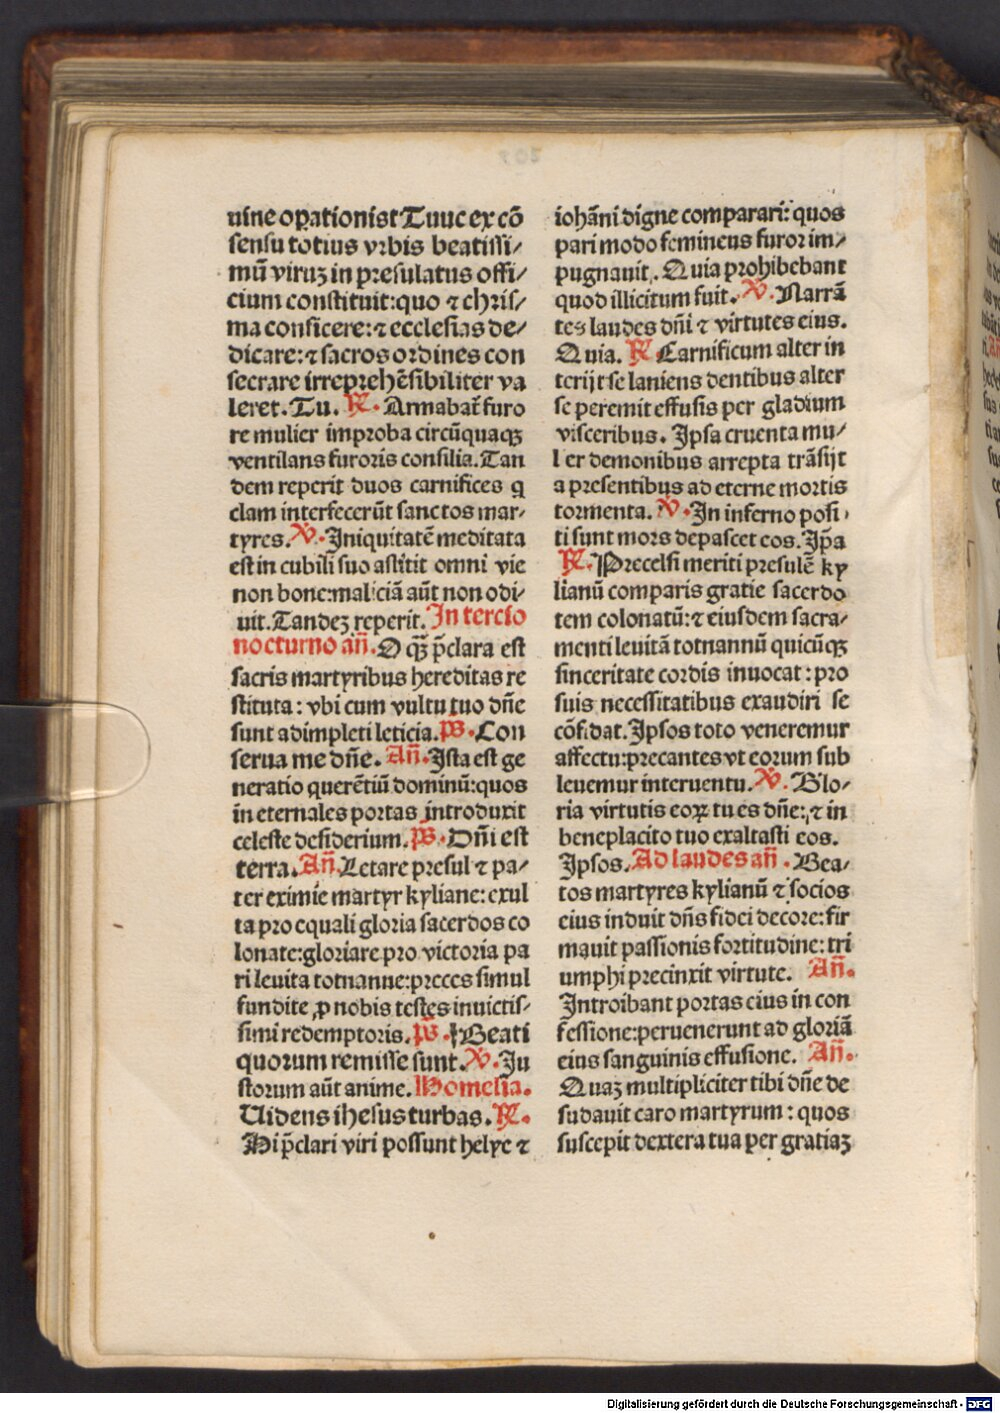 uine oꝑationis: Tunc ex cō
sensu totius vrbis beatissi/
mū viruꝫ in presulatus offi/
cium constituit: quo ⁊ chris/
ma conficere: ⁊ ecclesias de/
dicare: ⁊ sacros ordines con
secrare irreprehēsibiliter va
leret. Tu. ℟. Armabat̄ furo
re mulier improba circūquaqꝫ
ventilans furoris consilia. Tan
dem reperit duos carnifices q
clam interfecerūt sanctos mar-
tyres. ℣. Iniquitatē meditata
est in cubili suo astitit omni vie
non bone: maliciā aūt non odi/
uit. Tandeꝫ reperit. In tercio
nocturno añ. O qꝫ̄ p̄clara est
sacris martyribus hereditas re
stituta: vbi cum vultu tuo dñe
sunt adimpleti leticia. ps. Con
serua me dñe. Añ. Ista est ge
neratio querētiū dominū: quos
in eternales portas introduxit
celeste desiderium. ps. Dñi est
terra. Añ. Letare presul ⁊ pa/
ter eximie martyr kyliane: exul
ta pro equali gloria sacerdos co
lonate: gloriare pro victoria pa
ri leuita totnanne: preces simul
fundite ꝓ nobis testes inuictis/
simi redemptoris. ps. Beati
quorum remisse sunt. ℣. Iu
storum aūt anime. Homelia.
Uidens ihesus turbas. ℟.
Hi p̄clari viri possunt helye ⁊
iohāni digne comparari: quos
pari modo femineus furor im/
pugnauit. Quia prohibebant
quod illicitum fuit. ℣. Narrā
tes laudes dñi ⁊ virtutes eius.
Quia. ℟ Carnificum alter in
terijt se laniens dentibus alter
se peremit effusis per gladium
visceribus. Ipsa cruenta mu/
l er demonibus arrepta trāsijt
a presentibus ad eterne mortis
tormenta. ℣. In inferno posi
ti sunt mors depascet eos. Ip̄a
℟. Precelsi meriti presulē ky
lianū comparis gratie sacerdo
tem colonatū: ⁊ eiusdem sacra/
menti leuitā totnannū quicūqꝫ
sinceritate cordis inuocat: pro
suis necessitatibus exaudiri se
cōfidat. Ipsos toto veneremur
affectu: precantes vt eorum sub
leuemur interuentu. ℣. Glo/
ria virtutis eoꝝ tu es dñe: ⁊ in
beneplacito tuo exaltasti eos.
Ipsos. Ad laudes añ. Bea/
tos martyres kylianū ⁊ socios
eius induit dñs fidei decore: fir
mauit passionis fortitudine: tri
umphi precinxit virtute. Añ.
Introibant portas eius in con
fessione: peruenerunt ad gloriā
eius sanguinis effusione. Añ.
Quaꝫ multipliciter tibi dñe de
sudauit caro martyrum: quos
suscepit dextera tua per gratiaꝫ
Digitalisierung gefördert durch die Deutsche Forschungsgemeinschaft - DFG